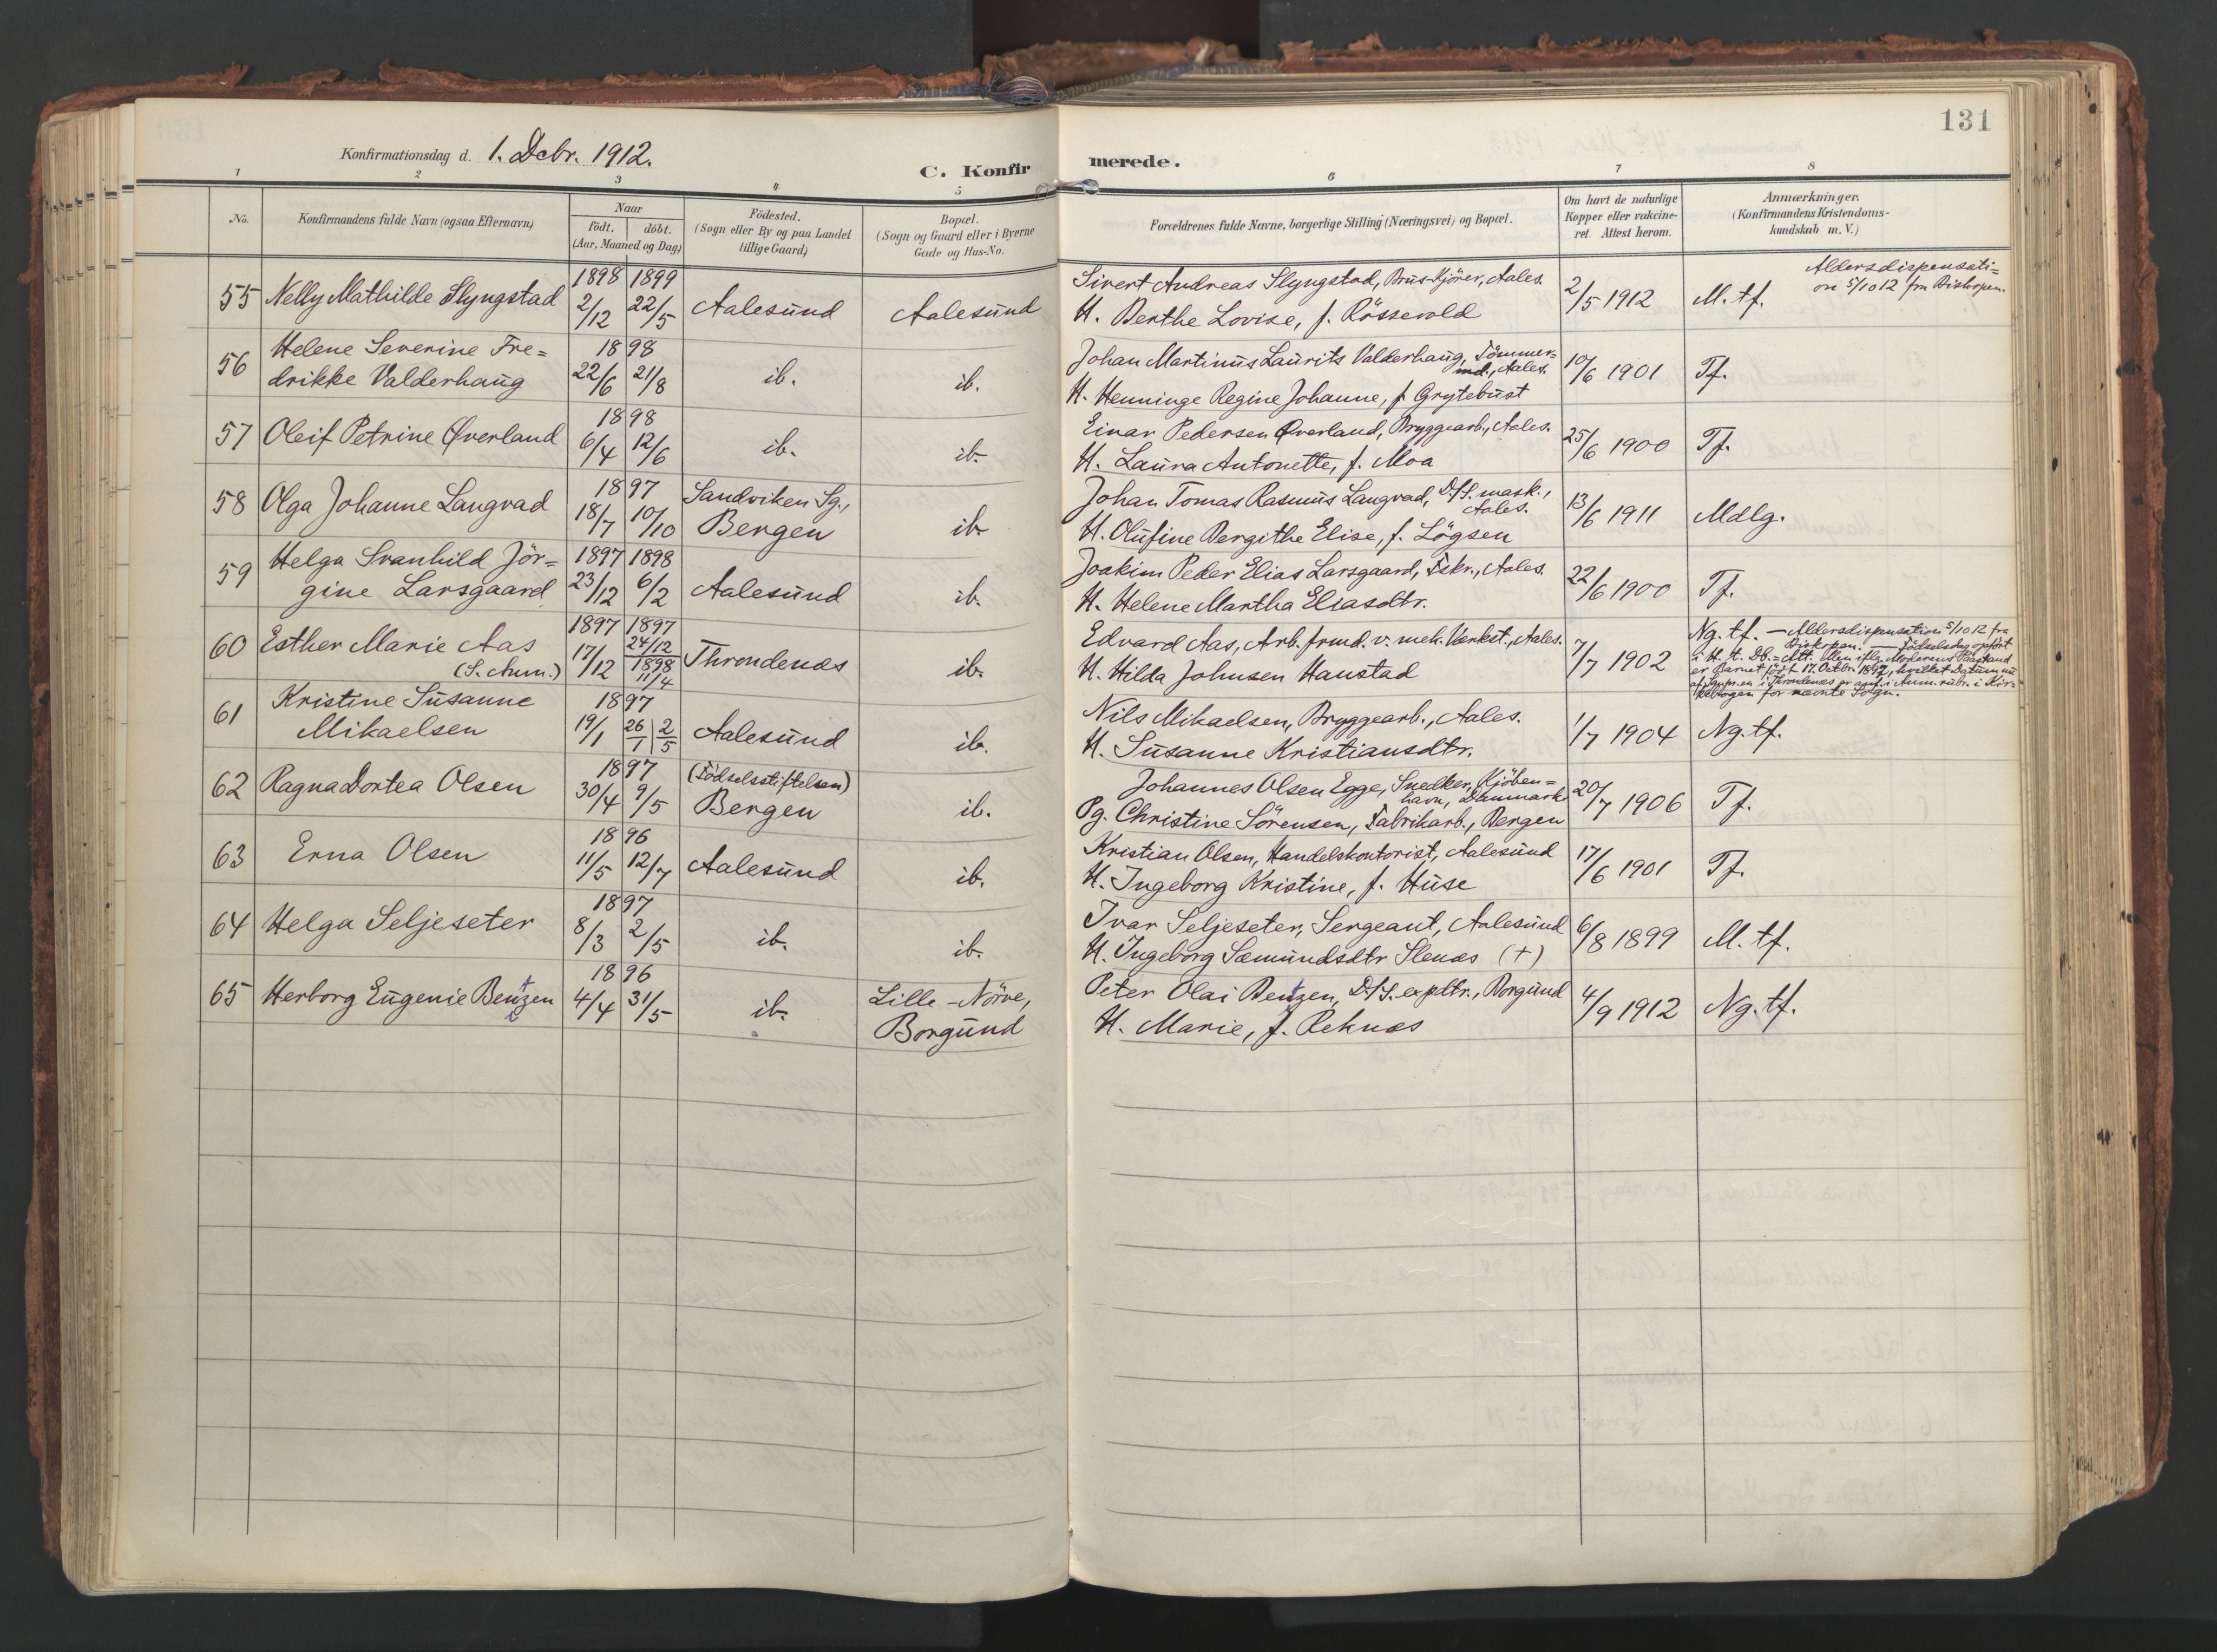 131
Konfirmationsdag d. 1. Debr. 1912.
C. Konfirmerede.
1 2 3 4 5 6 7 8
No. | Konfirmandens fulde Navn (ogsaa Efternavn) | Naar födt. döbt. (Aar, Maaned og Dag) | Födested. (Sogn eller By og paa Landet tillige Gaard) | Bopæl. (Sogn og Gaard eller i Byerne Gade og Hus-No. | Forældrenes fulde Navne, borgerlige Stilling (Næringsvei) og Bopæl. | Om havt de naturlige Kopper eller vakcineret. Attest herom. | Anmærkninger. (Konfirmandens Kristendomskundskab m. V.)
55 Nelly Mathilde Slyngstad | 1898 2/12 | 1899 22/5 | Aalesund | Aalesund | Sivert Andreas Slyngstad, Brus-Kjörer, Aales.
H. Berthe Lovise, f. Rössevold | 2/5 1912 | M. tf. Aldersdispensati=
on 5/10 12 fra Biskopen.
56 Helene Severine Fre=
drikke Valderhaug | 1898 22/6 | 21/8 | ib. | ib. | Johan Martinus Laurits Valderhaug, Tömmer=
md., Aales.
H. Henninge Regine Johanne, f. Grytebust | 10/6 1901 | Tf.
57 Oleif Petrine Øverland | 1898 6/4 | 12/6 | ib. | ib. | Einar Pedersen Øverland, Bryggearb., Aales.
H. Laura Antonette, f. Moa | 25/6 1900 | Tf.
58 Olga Johanne Langvad | 1897 18/7 | 10/10 | Sandviken Sg.,
Bergen | ib. | Johan Tomas Rasmus Langvad, D/S. mask.,
Aales.
H. Olufine Bergithe Elise, f. Lögsen | 13/6 1911 | Mdlg.
59 Helga Svanhild Jör=
gine Larsgaard | 1897 23/12 | 1898 6/2 | Aalesund | ib. | Joakim Peder Elias Larsgaard, Fskr., Aales.
H. Helene Martha Eliasdtr. | 22/6 1900 | Tf.
60 Esther Marie Aas
(S. Anm.) | 1897 17/12 | 1897 24/12 1898 11/4 | Throndenæs | ib. | Edvard Aas, Arb. frmd. v. mek. Værkst., Aales.
H. Hilda Johnsen Haustad | 7/7 1902 | Ng. tf. — Aldersdispensation 5/10 12 fra
Biskopen. — Födselsdag opfört
i H. t. Db.=Att. Men iflg. Moderens Paastand
er Barnet födt 17. Oktbr. 1897, hvilket Datum nu
af Sgnpr.en i Throndenæs er anf. i Anm. rubr. i Kir=
kebogen for nævnte Sogn.
61 Kristine Susanne
Mikaelsen | 1897 19/1 | 26/1 2/5 | Aalesund | ib. | Nils Mikaelsen, Bryggearb., Aales.
H. Susanne Kristiansdtr. | 1/7 1904 | Ng. tf.
62 Ragna Dortea Olsen | 1897 30/4 | 9/5 | (Födselsstiftelsen)
Bergen | ib. | Johannes Olsen Egge, Snedker, Kjöben=
havn, Danmark
Pg. Christine Sörensen, Fabrikarb., Bergen | 20/7 1906 | Tf.
63 Erna Olsen | 1896 11/5 | 12/7 | Aalesund | ib. | Kristian Olsen, Handelskontorist, Aalesund
H. Ingeborg Kristine, f. Huse | 17/6 1901 | Tf.
64 Helga Seljeseter | 1897 8/3 | 2/5 | ib. | ib. | Ivar Seljeseter, Sergeant, Aalesund
H. Ingeborg Sæmundsdtr Slenæs (+) | 6/8 1899 | M. tf.
65 Herborg Eugenie Bentzen | 1896 4/4 | 31/5 | ib. | Lille-Nörve,
Borgund | Peter Olai Bentzen, D/S.-expdtr., Borgund
H. Marie, f. Reknæs | 4/9 1912 | Ng. tf.